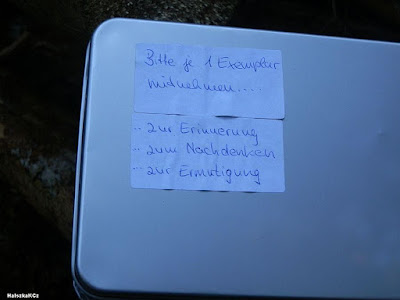 Bitte je 1 Exemplar
mitnehmen....
... zur Erinnerung
... zum Nachdenken
... zur Ermutigung
HaiszkaKCz